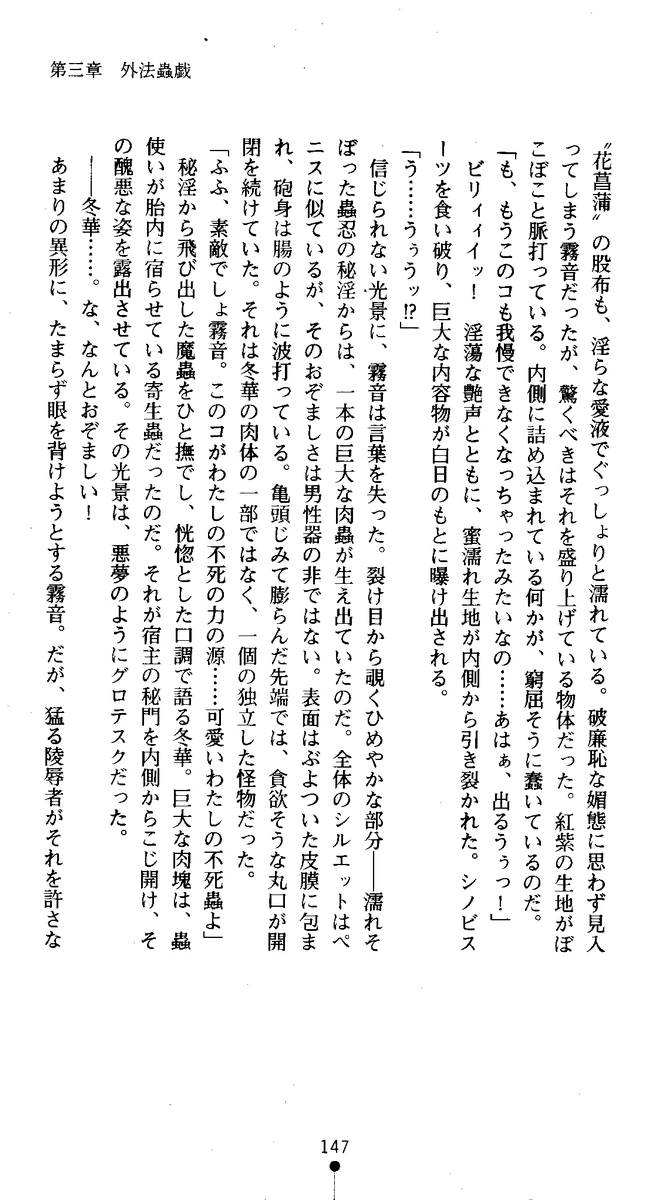 第三章　外法蟲戯
〝花菖蒲〟の股布も、淫らな愛液でぐっしょりと濡れている。破廉恥な媚態に思わず見入
ってしまう霧音だったが、驚くべきはそれを盛り上げている物体だった。紅紫の生地がぼ
こぼこと脈打っている。内側に詰め込まれている何かが、窮屈そうに蠢いているのだ。
「も、もうこのコも我慢できなくなっちゃったみたいなの……あはぁ、出るうぅっ！」
ビリィィイッ！　淫蕩な艶声とともに、蜜濡れ生地が内側から引き裂かれた。シノビス
ーツを食い破り、巨大な内容物が白日のもとに曝け出される。
「う……うぅうッ⁉」
信じられない光景に、霧音は言葉を失った。裂け目から覗くひめやかな部分――濡れそ
ぼった蟲忍の秘淫からは、一本の巨大な肉蟲が生え出ていたのだ。全体のシルエットはペ
ニスに似ているが、そのおぞましさは男性器の非ではない。表面はぶよついた皮膜に包ま
れ、砲身は腸のように波打っている。亀頭じみて膨らんだ先端では、貪欲そうな丸口が開
閉を続けていた。それは冬華の肉体の一部ではなく、一個の独立した怪物だった。
「ふふ、素敵でしょ霧音。このコがわたしの不死の力の源……可愛いわたしの不死蟲よ」
秘淫から飛び出した魔蟲をひと撫でし、恍惚とした口調で語る冬華。巨大な肉塊は、蟲
使いが胎内に宿らせている寄生蟲だったのだ。それが宿主の秘門を内側からこじ開け、そ
の醜悪な姿を露出させている。その光景は、悪夢のようにグロテスクだった。
――冬華……。な、なんとおぞましい！
あまりの異形に、たまらず眼を背けようとする霧音。だが、猛る陵辱者がそれを許さな
147